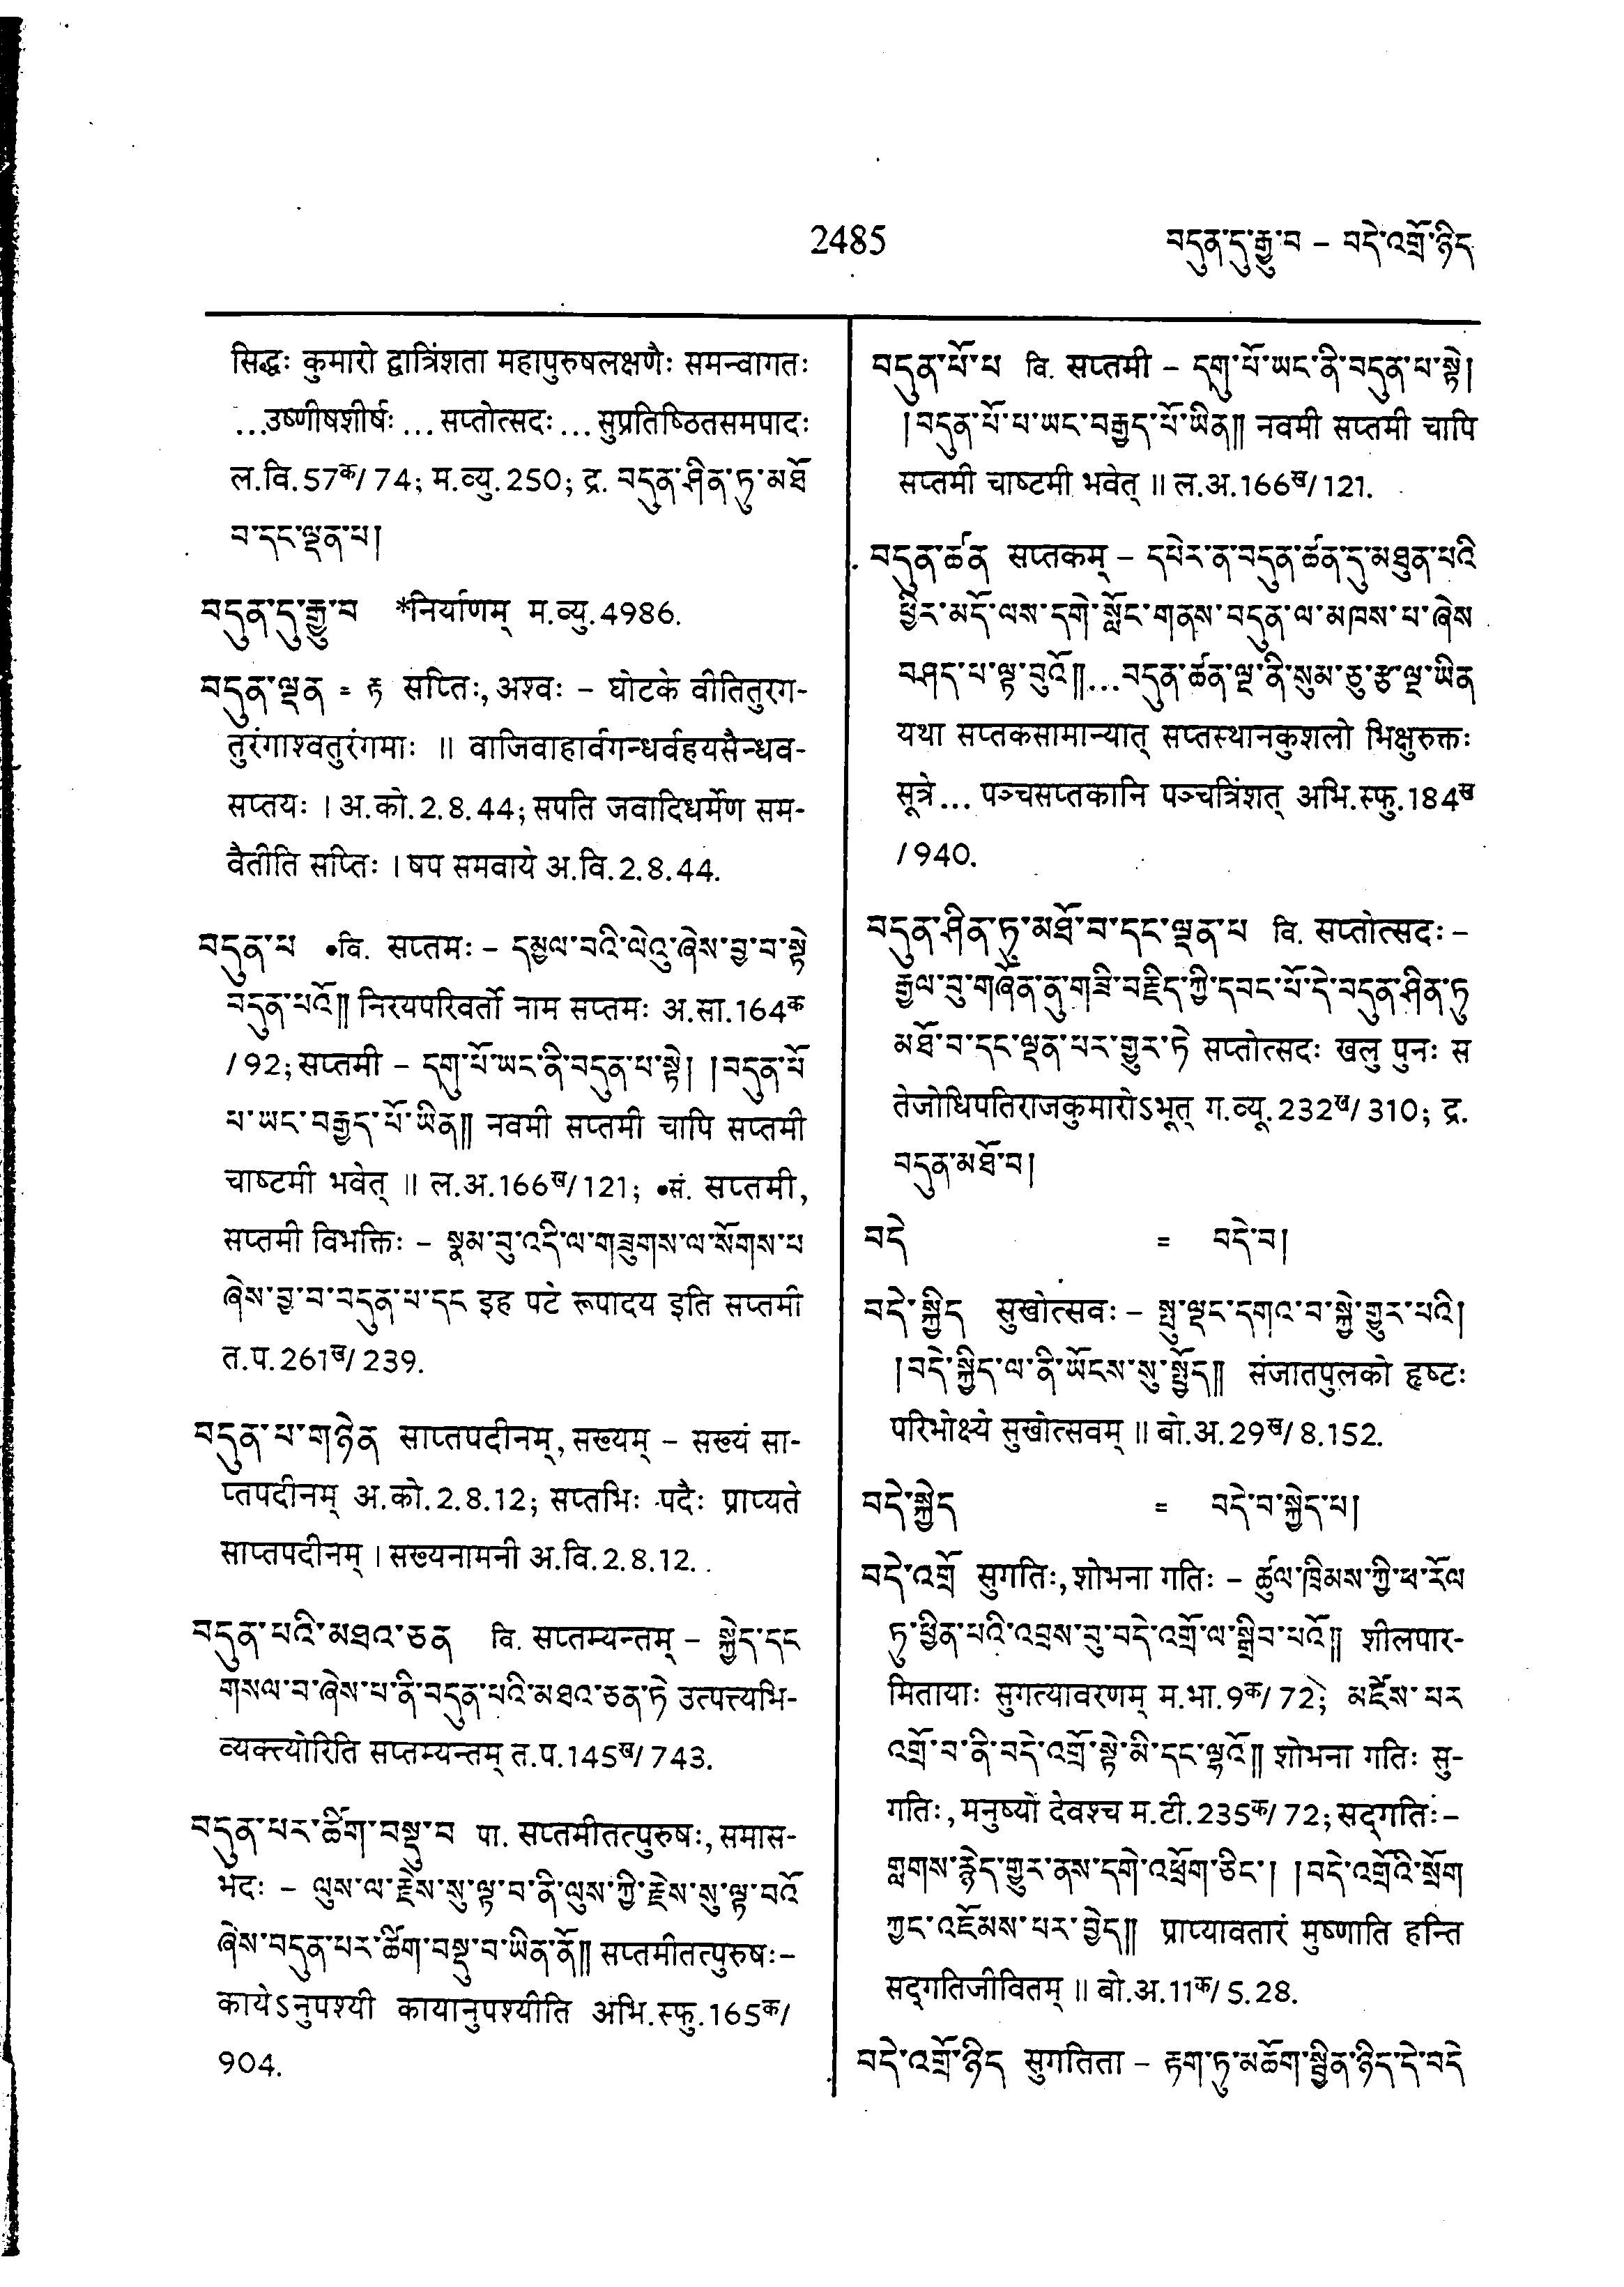 2485
བདུན་དུ་རྒྱུ་བ – བདེ་འགྲོ་ཉིད
सिद्धः कुमारो द्वात्रिंशता महापुरुषलक्षणैः समन्वागतः
...उष्णीषशीर्षः ... सप्तोत्सदः ... सुप्रतिष्ठितसमपादः
ल.वि.57क/74; म.व्यु.250; द्र. བདུན་ཤིན་ཏུ་མཐོ
བ་དང་ལྡན་པ།
བདུན་དུ་རྒྱུ་བ *निर्याणम् म.व्यु.4986.
བདུན་ལྡན = རྟ सप्तिः, अश्वः – घोटके वीतितुरग-
तुरंगाश्वतुरंगमाः ॥ वाजिवाहार्वगन्धर्वहयसैन्धव-
सप्तयः । अ.को.2.8.44; सपति जवादिधर्मेण सम-
वैतीति सप्तिः । षप समवाये अ.वि.2.8.44.
བདུན་པ •वि. सप्तमः – དམྱལ་བའི་ལེའུ་ཞེས་བྱ་བ་སྟེ
བདུན་པའོ༎ निरयपरिवर्तो नाम सप्तमः अ.सा.164क
/92; सप्तमी – དགུ་པོ་ཡང་ནི་བདུན་པ་སྟེ། །བདུན་པོ
པ་ཡང་བརྒྱད་པོ་ཡིན༎ नवमी सप्तमी चापि सप्तमी
चाष्टमी भवेत् ॥ ल.अ.166ख/121; •सं. सप्तमी,
सप्तमी विभक्तिः – སྣམ་བུ་འདི་ལ་གཟུགས་ལ་སོགས་པ
ཞེས་བྱ་བ་བདུན་པ་དང इह पटे रूपादय इति सप्तमी
त.प.261ख/239.
བདུན་པ་གཉེན साप्तपदीनम्, सख्यम् – सख्यं सा-
प्तपदीनम् अ.को.2.8.12; सप्तभिः पदैः प्राप्यते
साप्तपदीनम् । सख्यनामनी अ.वि.2.8.12.
བདུན་པའི་མཐའ་ཅན वि. सप्तम्यन्तम् – སྐྱེད་དང
གསལ་བ་ཞེས་པ་ནི་བདུན་པའི་མཐའ་ཅན་ཏེ उत्पत्त्यभि-
व्यक्त्योरिति सप्तम्यन्तम् त.प.145ख/743.
བདུན་པར་ཚིག་བསྡུ་བ पा. सप्तमीतत्पुरुषः, समास-
भेदः – ལུས་ལ་རྗེས་སུ་ལྟ་བ་ནི་ལུས་ཀྱི་རྗེས་སུ་ལྟ་བའོ
ཞེས་བདུན་པར་ཚིག་བསྡུ་བ་ཡིན་ནོ༎ सप्तमीतत्पुरुषः–
कायेऽनुपश्यी कायानुपश्यीति अभि.स्फु.165क/
904.
བདུན་པོ་པ वि. सप्तमी – དགུ་པོ་ཡང་ནི་བདུན་པ་སྟེ།
།བདུན་པོ་པ་ཡང་བརྒྱད་པོ་ཡིན༎ नवमी सप्तमी चापि
सप्तमी चाष्टमी भवेत् ॥ ल.अ.166ख/121.
བདུན་ཚན सप्तकम् – དཔེར་ན་བདུན་ཚན་དུ་མཐུན་པའི
ཕྱིར་མདོ་ལས་དགེ་སློང་གནས་བདུན་ལ་མཁས་པ་ཞེས
བཤད་པ་ལྟ་བུའོ༎...བདུན་ཚན་ལྔ་ནི་སུམ་ཅུ་རྩ་ལྔ་ཡིན
यथा सप्तकसामान्यात् सप्तस्थानकुशलो भिक्षुरुक्तः
सूत्रे... पञ्चसप्तकानि पञ्चत्रिंशत् अभि.स्फु.184ख
/940.
བདུན་ཤིན་ཏུ་མཐོ་བ་དང་ལྡན་པ वि. सप्तोत्सदः –
རྒྱལ་བུ་གཞོན་ནུ་གཟི་བརྗིད་ཀྱི་དབང་པོ་དེ་བདུན་ཤིན་ཏུ
མཐོ་བ་དང་ལྡན་པར་གྱུར་ཏེ सप्तोत्सदः खलु पुनः स
तेजोधिपतिराजकुमारोऽभूत् ग.व्यू.232ख/310; द्र.
བདུན་མཐོ་བ།
བདེ = བདེ་བ།
བདེ་སྐྱིད सुखोत्सवः – སྤུ་ལྡང་དགའ་བ་སྐྱེ་གྱུར་པའི།
།བདེ་སྐྱིད་ལ་ནི་ཡོངས་སུ་སྤྱོད༎ संजातपुलको हृष्टः
परिभोक्ष्ये सुखोत्सवम् ॥ बो.अ.29ख/8.152.
བདེ་སྐྱེད = བདེ་བ་སྐྱེད་པ།
བདེ་འགྲོ सुगतिः, शोभना गतिः – ཚུལ་ཁྲིམས་ཀྱི་ཕ་རོལ
ཏུ་ཕྱིན་པའི་འབྲས་བུ་བདེ་འགྲོ་ལ་སྒྲིབ་པའོ༎ शीलपार-
मितायाः सुगत्यावरणम् म.भा.9क/72; མཛེས་པར
འགྲོ་བ་ནི་བདེ་འགྲོ་སྟེ་མི་དང་ལྷའོ༎ शोभना गतिः सु-
गतिः, मनुष्यो देवश्च म.टी.235क/72; सद्गतिः–
གླགས་རྙེད་གྱུར་ནས་དགེ་འཕྲོག་ཅིང་། །བདེ་འགྲོའི་སྲོག
ཀྱང་འཇོམས་པར་བྱེད༎ प्राप्यावतारं मुष्णाति हन्ति
सद्गतिजीवितम् ॥ बो.अ.11क/5.28.
བདེ་འགྲོ་ཉིད सुगतिता – རྟག་ཏུ་མཆོག་སྦྱིན་ཉིད་དེ་བདེ